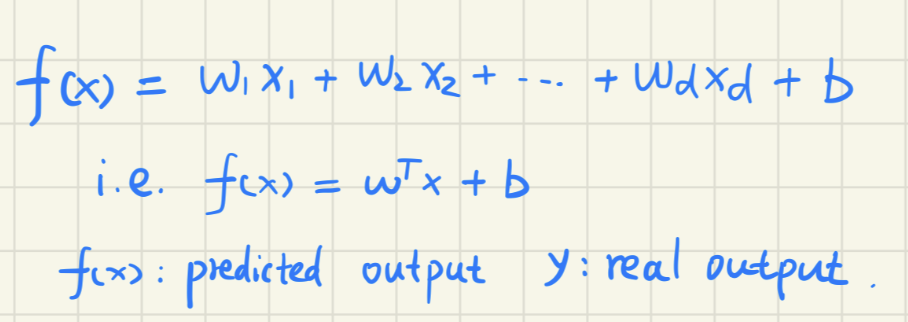 f(x) = w₁x₁ + w₂x₂ + ··· + w_d x_d + b
i.e. f(x) = wᵀx + b
f(x): predicted output y: real output.